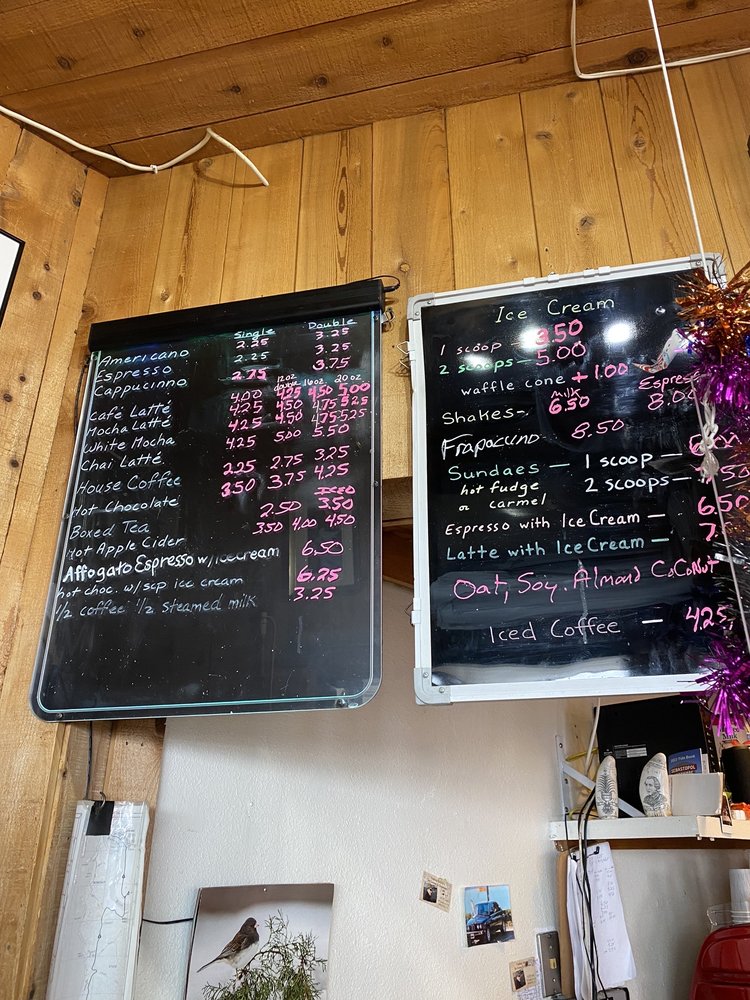 Single Double
Americano 2.25 3.25
Espresso 2.25 3.25
Cappucinno 2.75 3.75
12oz 16oz. 20oz
Café Latté 4.00 4.25 4.50 5.00
Mocha Latté 4.25 4.50 4.75 5.25
White Mocha 4.25 4.50 4.75 5.25
Chai Latté 4.25 5.00 5.50
House Coffee 2.25 2.75 3.25
Hot Chocolate 3.50 3.75 4.25
ICED
Boxed Tea 2.50 3.50
Hot Apple Cider 3.50 4.00 4.50
Affogato Espresso w/icecream 6.50
hot choc. w/scp ice cream 6.25
1/2 coffee 1/2 steamed milk 3.25
Ice Cream
1 scoop 3.50
2 scoops- 5.00
waffle cone + 1.00
Milk
Shakes- 6.50 8.00
Frapacuno 8.50
Sundaes — 1 scoop —
hot fudge 2 scoops-
or carmel
Espresso with Ice Cream — 6.50
Latte with Ice Cream — 7.
Oat, Soy. Almond CoCoNut
Iced Coffee — 4.25